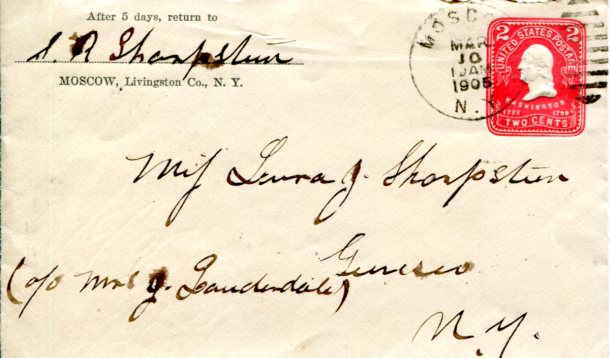 After 5 days, return to
S. R. Sharpsteen
MOSCOW, Livingston Co., N. Y.
MOSCOW
MAR
10
1 AM
1905
N.Y.
UNITED STATES POSTAGE
2 2
WASHINGTON
1732 1799
TWO CENTS
Miss Laura J. Sharpsteen
Geneseo
(c/o Mrs J. Lauderdale)
N.Y.